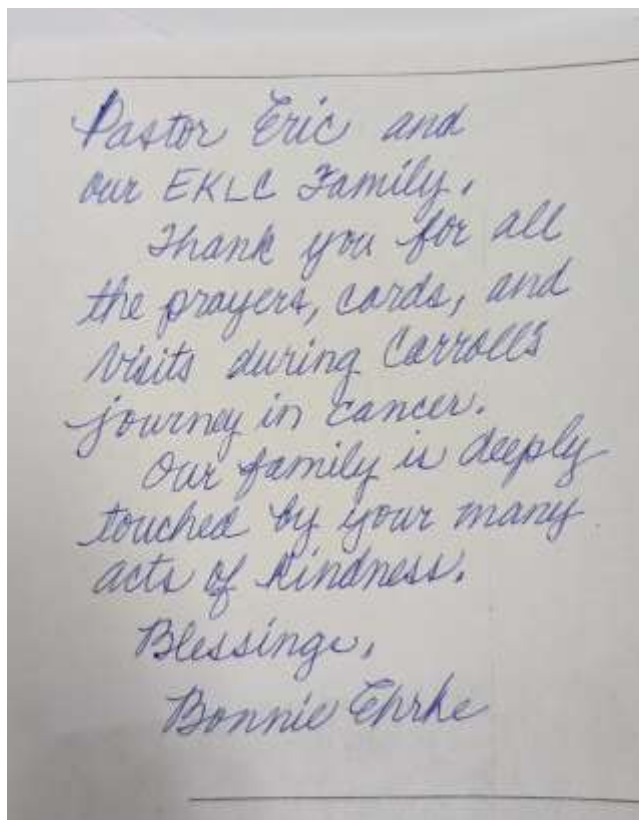 Pastor Eric and
our EKLC Family,
Thank you for all
the prayers, cards, and
visits during Carroll's
journey in cancer.
Our family is deeply
touched by your many
acts of kindness.
Blessings,
Bonnie Ehrke